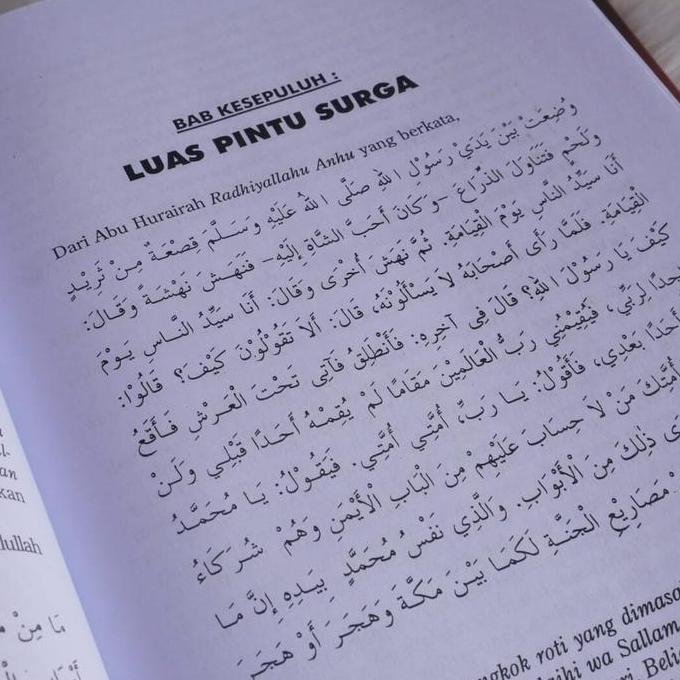 BAB KESEPULUH :
LUAS PINTU SURGA
Dari Abu Hurairah Radhiyallahu Anhu yang berkata,
وُضِعَتْ بَيْنَ يَدَيْ رَسُوْلِ اللهِ صَلَّى اللهُ عَلَيْهِ وَسَلَّمَ قِصْعَةٌ مِنْ ثَرِيْدٍ
وَلَحْمٍ فَتَنَاوَلَ الذِّرَاعَ -وَكَانَ أَحَبَّ الشَّاةِ إِلَيْهِ- فَنَهَسَ نَهْسَةً وَقَالَ:
أَنَا سَيِّدُ النَّاسِ يَوْمَ الْقِيَامَةِ. ثُمَّ نَهَسَ أُخْرَى وَقَالَ: أَنَا سَيِّدُ النَّاسِ يَوْمَ
الْقِيَامَةِ. فَلَمَّا رَأَى أَصْحَابَهُ لَا يَسْأَلُوْنَهُ، قَالَ: أَلَا تَقُوْلُوْنَ كَيْفَ؟ قَالُوْا:
كَيْفَ يَا رَسُوْلَ اللهِ؟ قَالَ فِى آخِرِهِ: فَأَنْطَلِقُ فَآتِى تَحْتَ الْعَرْشِ فَأَقَعُ
لِرَبِّي، فَيُقِيْمُنِي رَبُّ الْعَالَمِيْنَ مَقَامًا لَمْ يُقِمْهُ أَحَدًا قَبْلِي وَلَنْ
أَحَدًا بَعْدِي، فَأَقُوْلُ: يَا رَبِّ، أُمَّتِي أُمَّتِي. فَيَقُوْلُ: يَا مُحَمَّدُ
أُمَّتِكَ مَنْ لَا حِسَابَ عَلَيْهِمْ مِنَ الْبَابِ الْأَيْمَنِ وَهُمْ شُرَكَاءُ
ذٰلِكَ مِنَ الْأَبْوَابِ. وَالَّذِي نَفْسُ مُحَمَّدٍ بِيَدِهِ إِنَّ مَا
مَصَارِيْعِ الْجَنَّةِ لَكَمَا بَيْنَ مَكَّةَ وَهَجَرَ أَوْ هَجَرَ
roti yang dimasa
wa Sallam
an
kan
مَا مِنْ